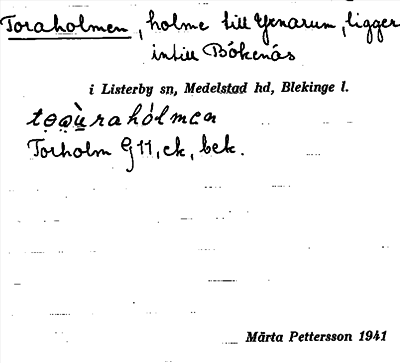 Toraholmen, holme till Yxnarum, ligger
intill Bökenäs
i Listerby sn, Medelstad hd, Blekinge l.
Torholm G11, ek, bek.
Märta Pettersson 1941